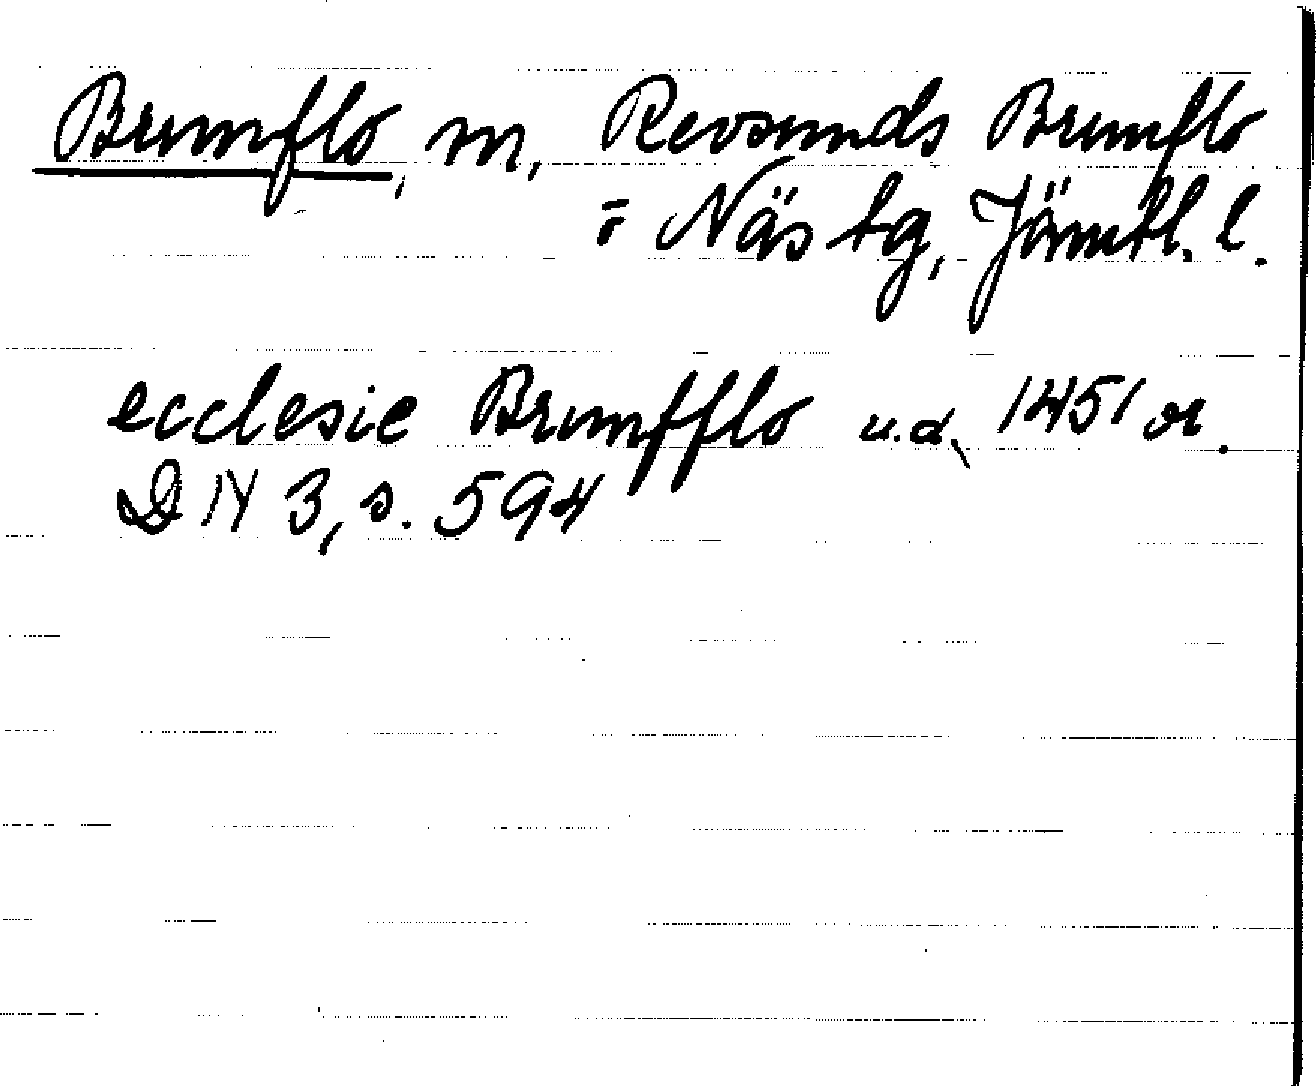 Brunflo, sn, Revsunds Brunflo
o Näs tg, Jämtl. l.
ecclesie Brunfflo u.d. 1451 or.
DN 3, s. 594